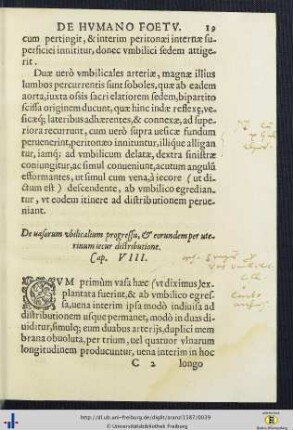 DE HVMANO FOETV. 19
cum pertingit, & interim peritonæi internæ su-
perficiei innititur, donec vmbilici sedem attige-
rit.
Duæ uerò vmbilicales arteriæ, magnæ illius
lumbos percurrentis sunt soboles, quæ ab eadem
aorta, iuxta ossis sacri elatiorem sedem, bipartito
scissa originem ducunt, quæ hinc indæ reflexæ, ve-
sicæq; lateribus adhærentes, & connexæ, ad supe-
riora recurrunt, cum uerò supra uesicæ fundum
peruenerint, peritonæo innituntur, illique alligan-
tur, iamq; ad vmbilicum delatæ, dextra sinistræ
coniungitur, ac simul conueniunt, acutum angulū
efformantes, ut simul cum vena, à iecore (ut di-
ctum est) descendente, ab vmbilico egredian-
tur, vt eodem itinere ad distributionem perue-
niant.
De uasorum vbilicalium progressu, & eorundem per ute-
rinum iecur distributione.
Cap. VIII.
CVM primùm vasa hæc (vt diximus) ex-
plantata fuerint, & ab vmbilico egres-
sa, uena interim ipsa modò indiuisa ad
distributionem usque permanet, modò in duas di-
uiditur, simulq; eum duabus arterijs, duplici mem
brana obuoluta, per trium, uel quatuor vlnarum
longitudinem producuntur, uena interim in hoc
C 2 longo
http://dl.ub.uni-freiburg.de/diglit/aranzi1587/0039
© Universitätsbibliothek Freiburg